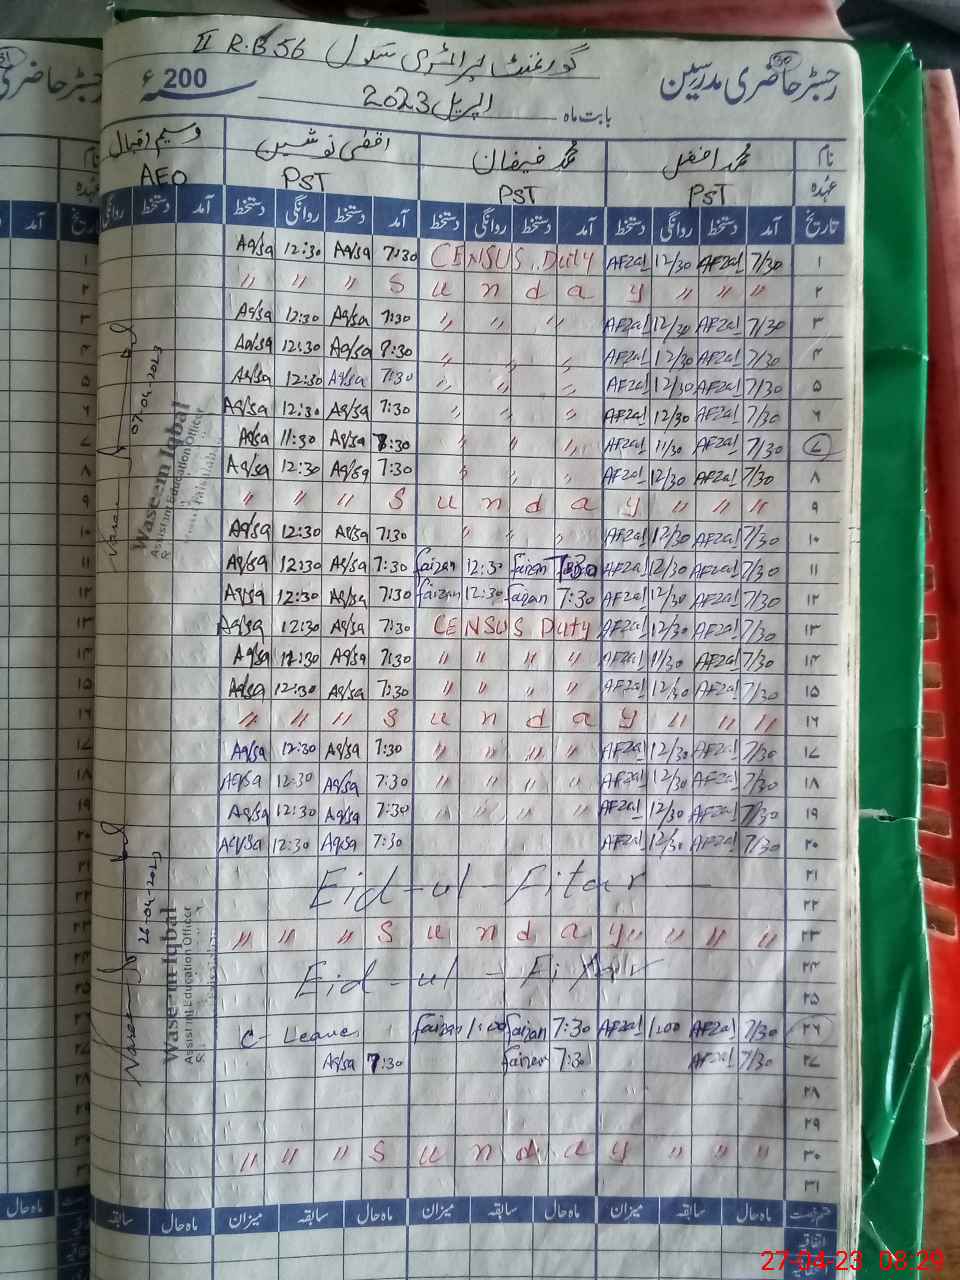 گورنمنٹ پرائمری سکول 56 R.B II
رجسٹر حاضری مدرسین
بابت ماہ اپریل 2023 200ء
نام محمد افضل محمد فیضان اقصٰی نوشین وسیم اقبال
عہدہ PST PST PST AEO
تاریخ آمد دستخط روانگی دستخط آمد دستخط روانگی دستخط آمد دستخط روانگی دستخط آمد دستخط روانگی
۱ 7/30 AFzal 12/30 AFzal CENSUS Duty 7:30 Aq/sa 12:30 Aq/sa
۲ " " " S u n d a y " " "
۳ 7/30 AFzal 12/30 AFzal " " " 7:30 Aq/sa 12:30 Aq/sa
۴ 7/30 AFzal 12/30 AFzal " " " 7:30 Aq/sa 12:30 Aq/sa
۵ 7/30 AFzal 12/30 AFzal " " " 7:30 Aq/sa 12:30 Aq/sa
۶ 7/30 AFzal 12/30 AFzal " " " 7:30 Aq/sa 12:30 Aq/sa
۷ 7/30 AFzal 11/30 AFzal " " " :30 Aq/sa 11:30 Aq/sa
۸ 7/30 AFzal 12/30 AFzal " " " 7:30 Aq/sa 12:30 Aq/sa
۹ " " " S u n d a y " " "
۱۰ 7/30 AFzal 12/30 AFzal " " " 7:30 Aq/sa 12:30 Aq/sa
۱۱ 7/30 AFzal 12/30 AFzal 7:30 faizan 12:30 faizan 7:30 Aq/sa 12:30 Aq/sa
۱۲ 7/30 AFzal 12/30 AFzal 7:30 faizan 12:30 faizan 7:30 Aq/sa 12:30 Aq/sa
۱۳ 7/30 AFzal 12/30 AFzal CENSUS Duty 7:30 Aq/sa 12:30 Aq/sa
۱۴ 7/30 AFzal 11/30 AFzal " " " " 7:30 Aq/sa :30 Aq/sa
۱۵ 7/30 AFzal 12/30 AFzal " " " " 7:30 Aq/sa 12:30 Aq/sa
۱۶ " " " S u n d a y " " "
۱۷ 7/30 AFzal 12/30 AFzal " " " " 7:30 Aq/sa 12:30 Aq/sa
۱۸ 7/30 AFzal 12/30 AFzal " " " " 7:30 Aq/sa 12:30 Aq/sa
۱۹ 7/30 AFzal 12/30 AFzal " " " " 7:30 Aq/sa 12:30 Aq/sa
۲۰ 7/30 AFzal 12/30 AFzal 7:30 Aq/sa 12:30 Aq/sa
۲۱ Eid-ul-Fitar
۲۲
۲۳ " " " S u n d a y " " "
۲۴ Eid-ul-Fitar
۲۵
۲۶ 7/30 AFzal 1/00 AFzal 7:30 faizan 1:00 faizan C- Leave
۲۷ 7/30 AFzal 7:30 faizan 7:30 Aq/sa
۲۸
۲۹
۳۰ " " " S u n d a y " " "
۳۱
قسم رخصت ماہ حال سابقہ میزان ماہ حال سابقہ میزان ماہ حال سابقہ میزان ماہ حال سابقہ
اتفاقیہ
07-04-2023
Waseem Iqbal
Assistant Education Officer
Faisalabad
26-04-2023
Waseem Iqbal
Assistant Education Officer
27-04-23 08:29